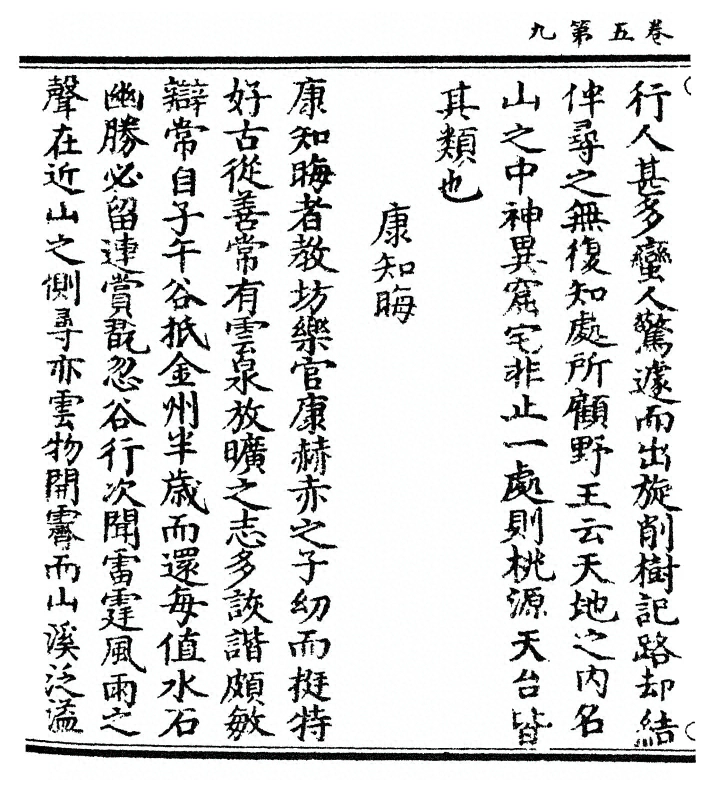 卷五第九
行人甚多蠻人驚遽而出旋削樹記路却結
伴尋之無復知處所顧野王云天地之内名
山之中神異窟宅非止一處則桃源天台皆
其類也
康知晦
康知晦者教坊樂官康赫赤之子幼而挺特
好古從善常有雲泉放曠之志多詼諧頗敏
辯常自子午谷抵金州半歲而還每值水石
幽勝必留連賞翫忽谷行次聞雷霆風雨之
聲在近山之側尋亦雲物開霽而山溪泛溢